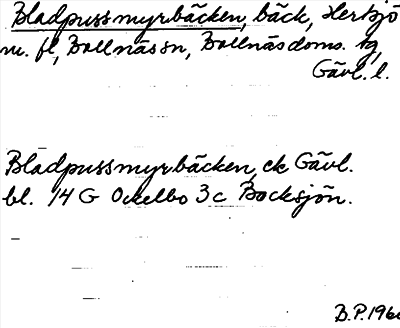 Bladpussmyrbäcken, bäck, Hertsjö
m. fl, Bollnäs sn, Bollnäs doms. tg,
Gävl. l.
Bladpussmyrbäcken, ek Gävl.
bl. 14 G Ockelbo 3c Bocksjön.
B.P. 196